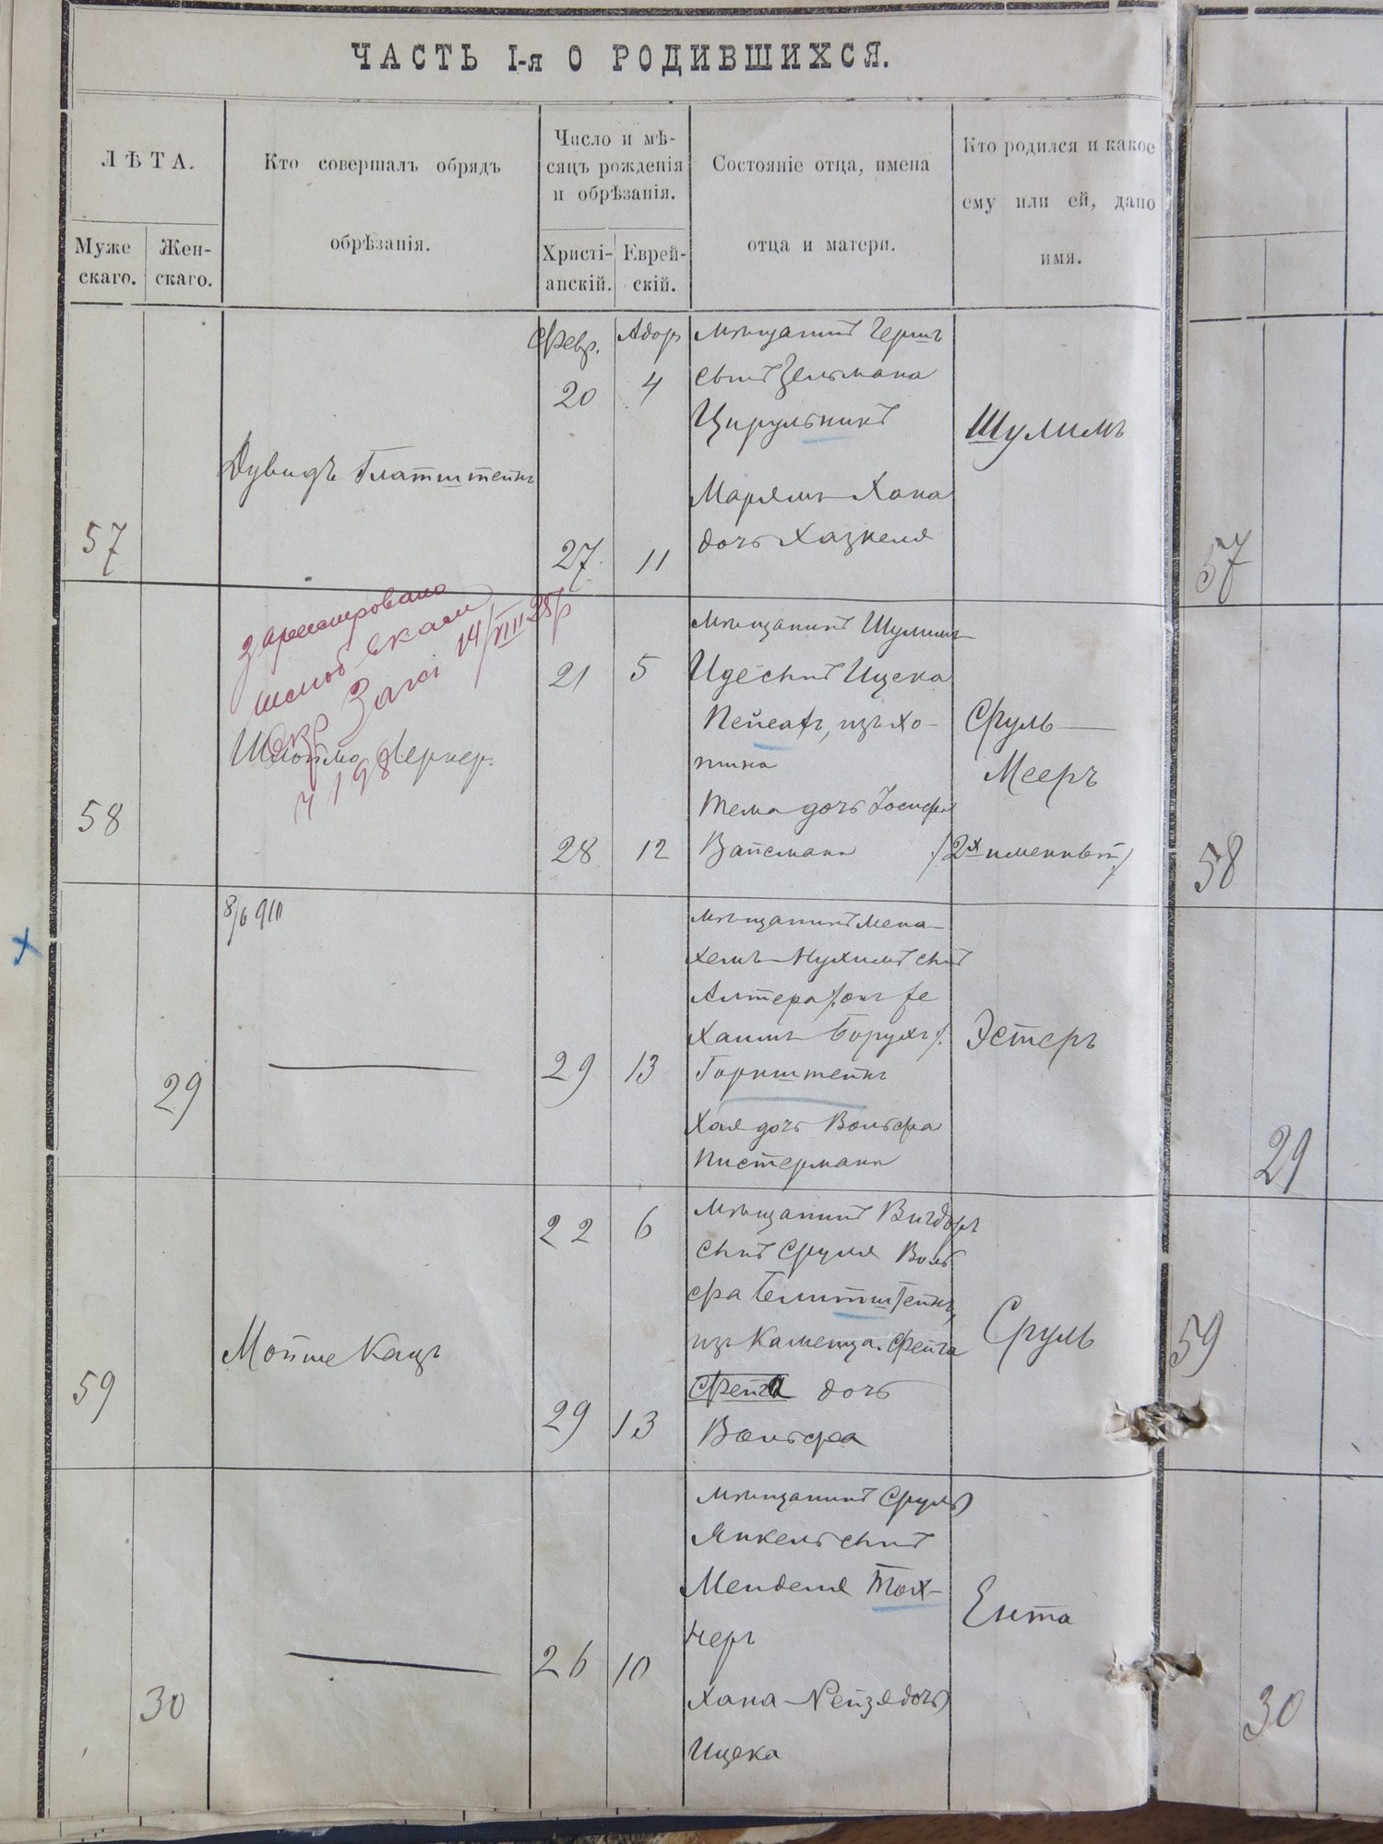 ЧАСТЬ I-я О РОДИВШИХСЯ.
ЛѢТА.
Муже
скаго.
Жен-
скаго.
Кто совершалъ обрядъ
обрѣзанія.
Число и мѣ-
сяцъ рожденія
и обрѣзанія.
Христі-
анскій.
Еврей-
скій.
Состояніе отца, имена
отца и матери.
Кто родился и какое
ему или ей, дано
имя.
57
Дувидъ Глатштейнъ
Февр.
20
27
Адоръ
4
11
мѣщанинъ Гершъ
сынъ Зельмана
Цирульникъ
Марямъ-Хана
дочь Хазкеля
Шулимъ
57
58
14/VIII 28 р
Шлоймо Лернер.
21
28
5
12
мѣщанинъ Шулимъ-
Идесынъ Ицека
Пейсахъ, изъ Хо-
тина
Тема дочь Іосифа
Вайсманъ
Сруль-
Мееръ
/2х именный/
58
8/6 910
29
29
13
мѣщанинъ Мена-
хемъ-Нухимъ сынъ
Алтера /:онъ же
Хаимъ-Борухъ:/
Горнштейнъ
Хая дочь Вольфа
Пистерманъ
Эстеръ
29
59
Мойше Кацъ
22
29
6
13
мѣщанинъ Вигдоръ
сынъ Сруля Воль
фа Гелитштейнъ,
изъ Каменца. Фейга
Фейга дочь
Вольфа
Сруль
59
30
26
10
мѣщанинъ Сруль
Янкель сынъ
Менделя Тох-
неръ
Хана-Рейзя дочь
Ицека
Ента
30